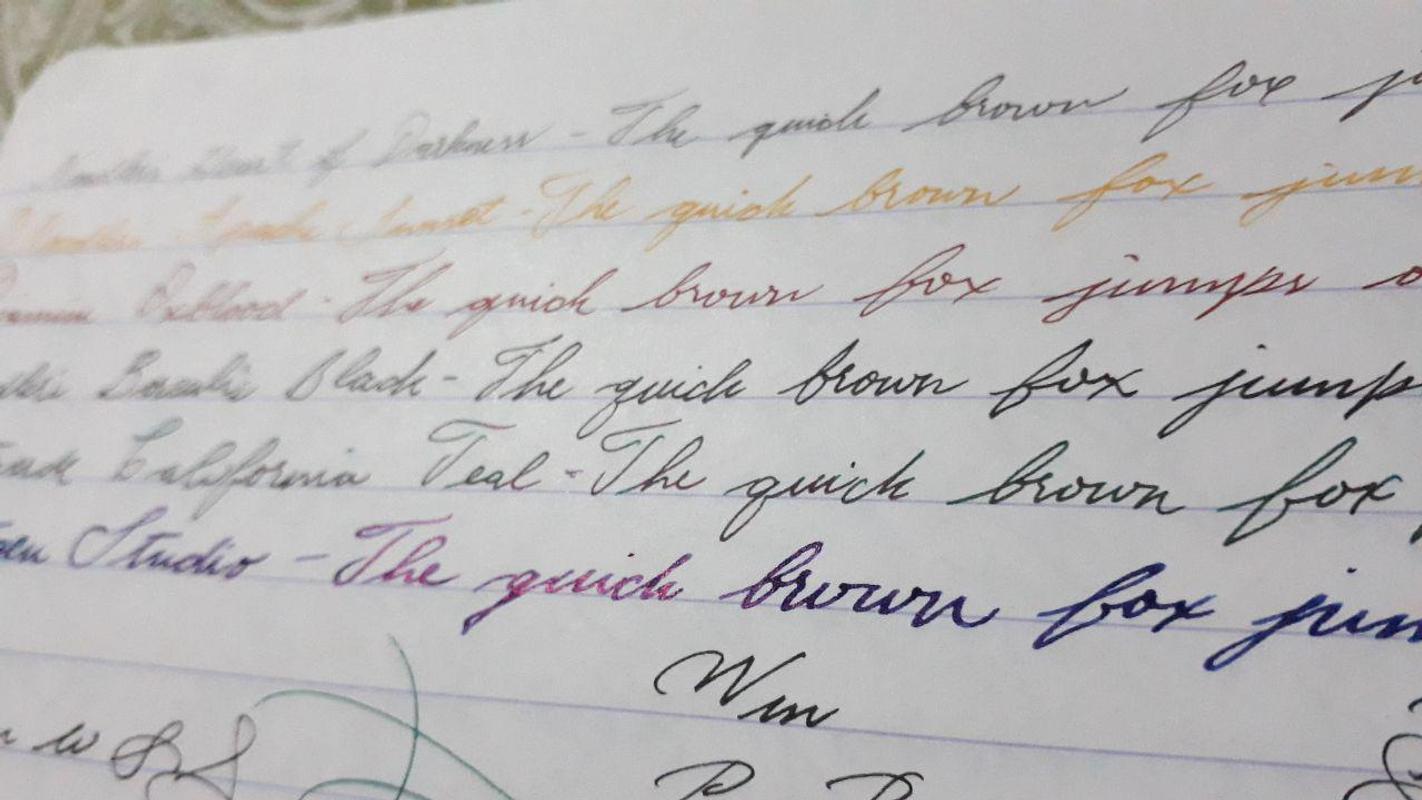 of Darkness - The quick brown fox ju
Sunset - The quick brown fox jum
Oxblood - The quick brown fox jumps o
Black - The quick brown fox jump
California Teal - The quick brown fox
Studio - The quick brown fox jum
Wm
w